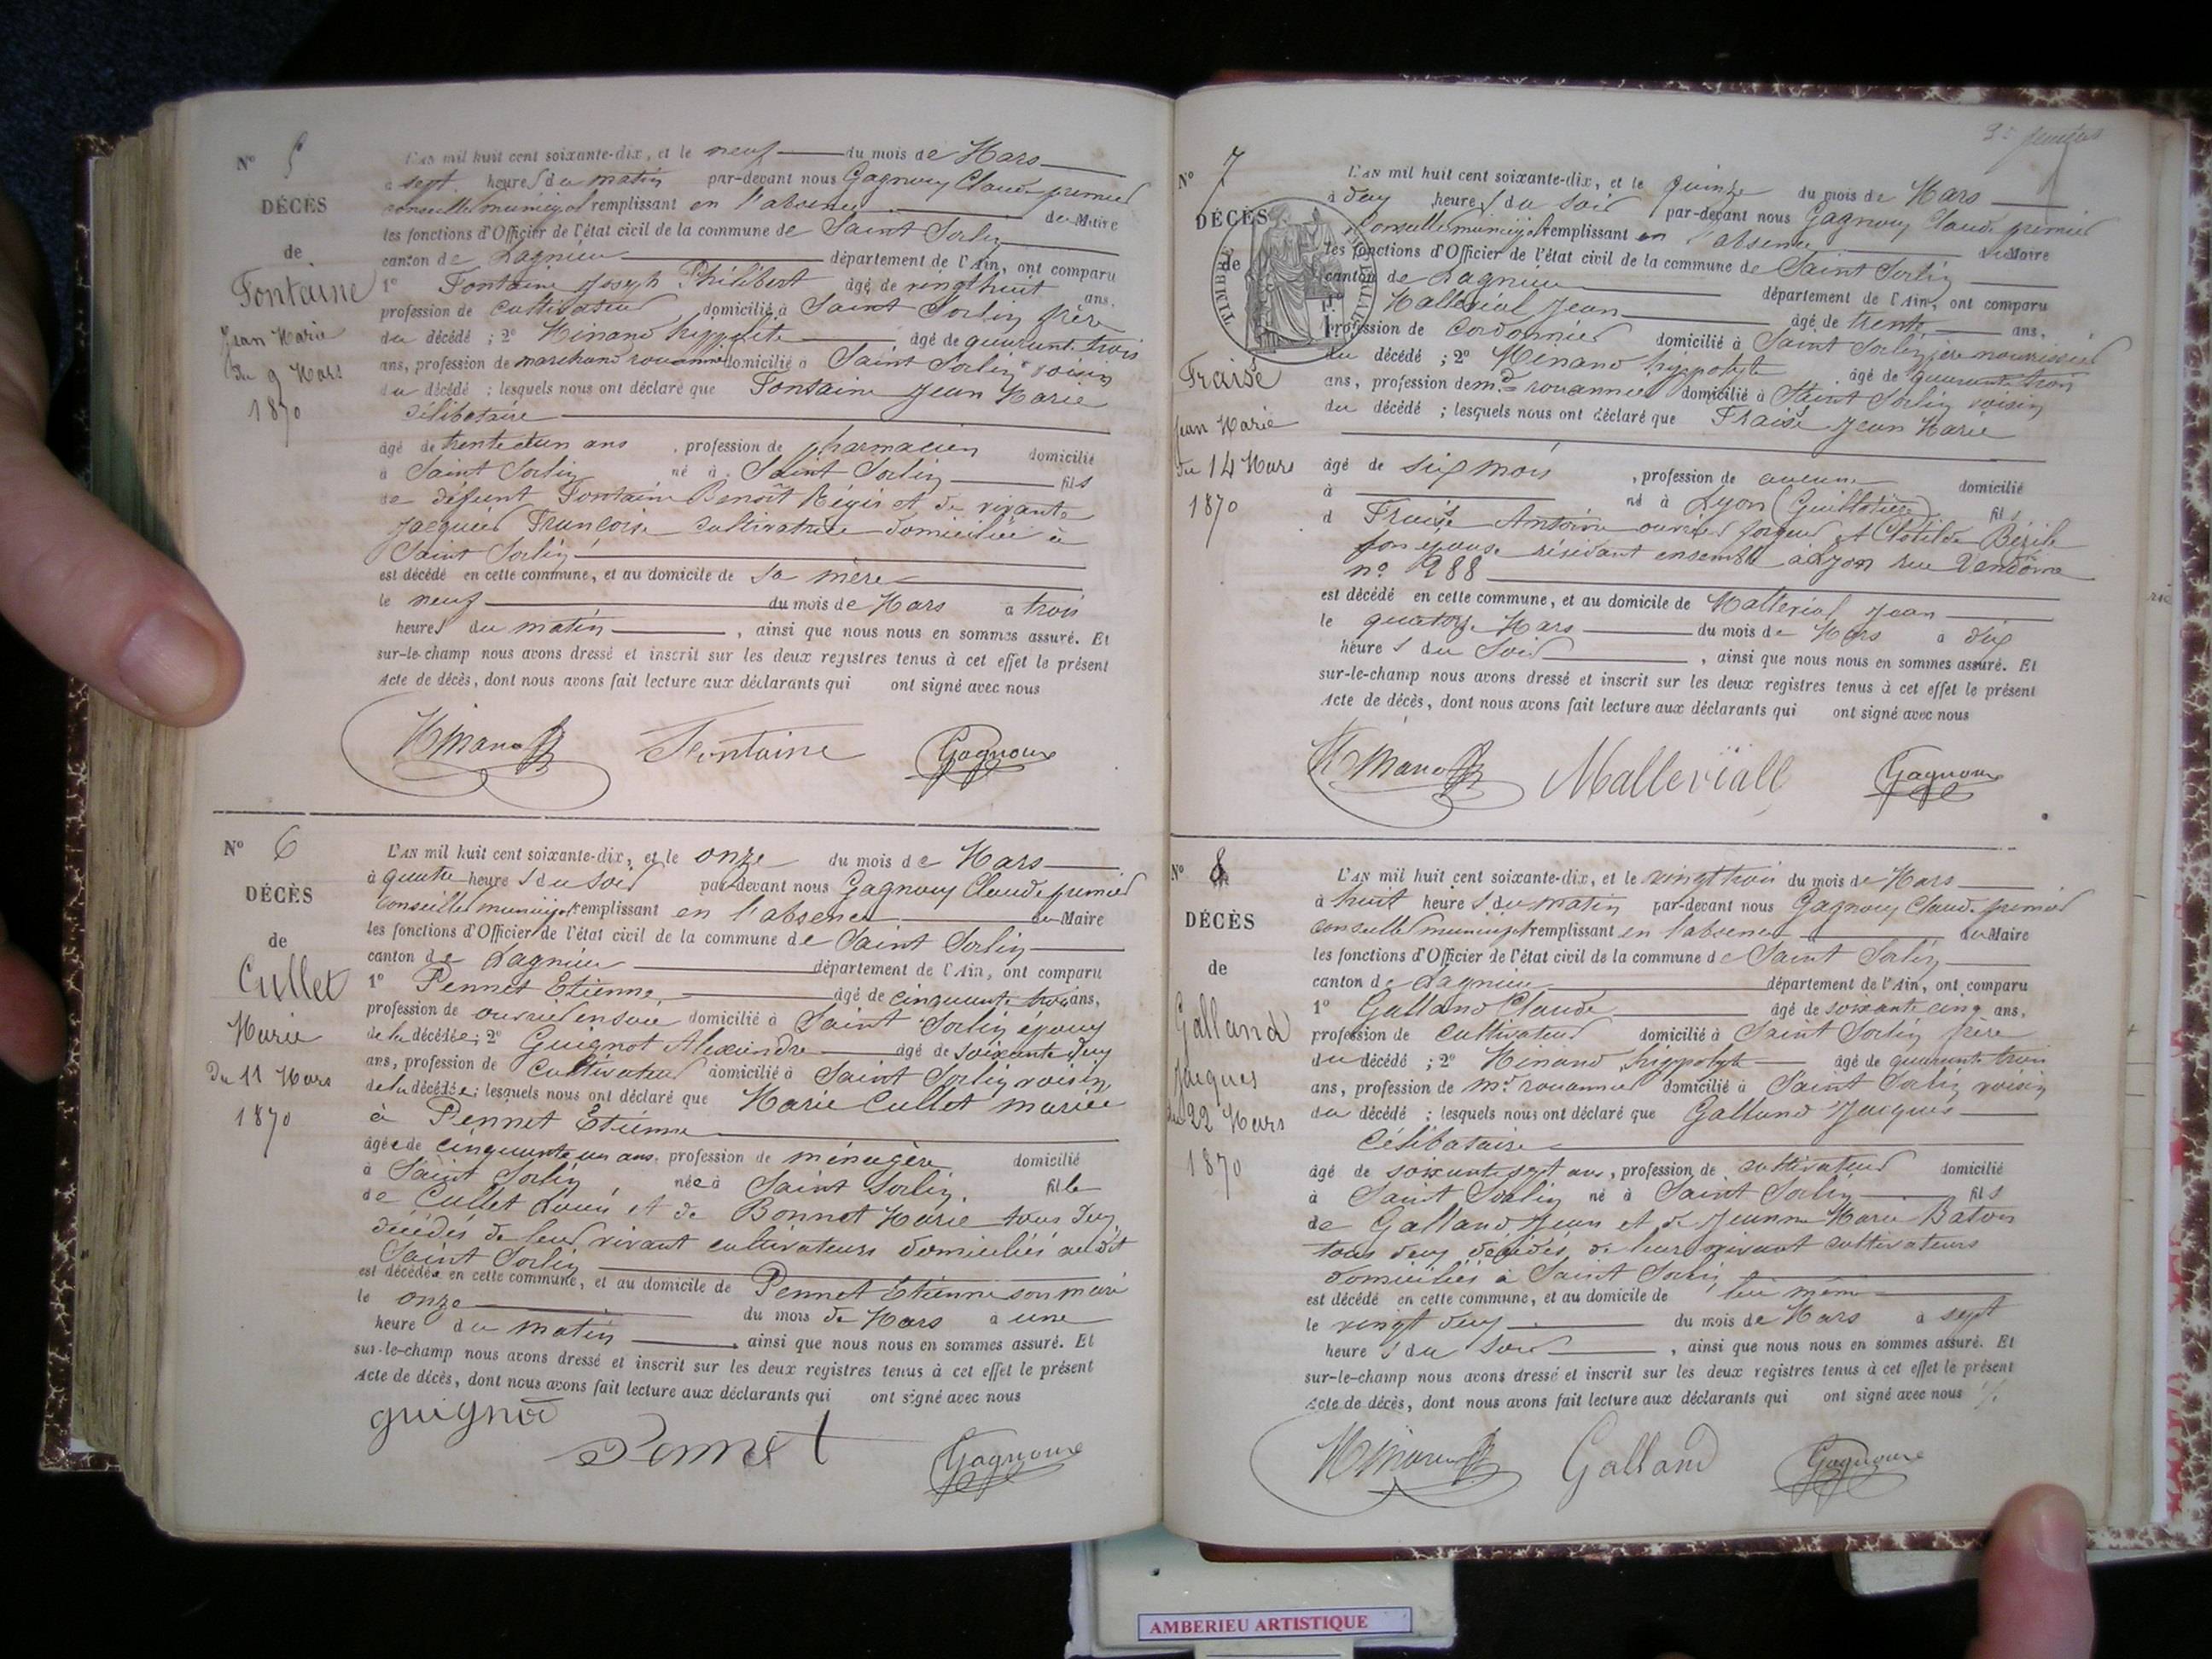 N° 5
DÉCÈS
de
Fontaine
Jean Marie
du 9 Mars
1870
L'AN mil huit cent soixante-dix, et le neuf du mois de Mars
à sept heures du matin par-devant nous Gagnoux Claude premier
conseiller municipal remplissant en l'absence du Maire
les fonctions d'Officier de l'état civil de la commune de Saint Sorlin
canton de Lagnieu département de l'Ain, ont comparu
1° Fontaine Joseph Philibert âgé de vingt huit ans,
profession de cultivateur domicilié à Saint Sorlin frère
du décédé ; 2° Menand hyppolite âgé de quarante trois
ans, profession de marchand rouannier domicilié à Saint Sorlin voisin
du décédé ; lesquels nous ont déclaré que Fontaine Jean Marie
célibataire
âgé de trente et un ans , profession de pharmacien domicilié
à Saint Sorlin né à Saint Sorlin fils
de défunt Fontaine Benoît Régis et de vivante
Jacquier Françoise cultivatrice domiciliée à
Saint Sorlin
est décédé en cette commune, et au domicile de sa mère
le neuf du mois de Mars à trois
heures du matin , ainsi que nous nous en sommes assuré. Et
sur-le-champ nous avons dressé et inscrit sur les deux registres tenus à cet effet le présent
Acte de décès, dont nous avons fait lecture aux déclarants qui ont signé avec nous
Menand Fontaine Gagnoux
N° 6
DÉCÈS
de
Cullet
Marie
Du 11 Mars
1870
L'AN mil huit cent soixante-dix, et le onze du mois de Mars
à quatre heures du soir par-devant nous Gagnoux Claude premier
conseiller municipal remplissant en l'absence du Maire
les fonctions d'Officier de l'état civil de la commune de Saint Sorlin
canton de Lagnieu département de l'Ain, ont comparu
1° Pennet Etienne âgé de cinquante trois ans,
profession de ouvrier en soie domicilié à Saint Sorlin époux
de la décédée ; 2° Guignot Alexandre âgé de soixante deux
ans, profession de Cultivateur domicilié à Saint Sorlin voisin
de la décédée ; lesquels nous ont déclaré que Marie Cullet mariée
à Pennet Etienne
âgée de cinquante un ans, profession de ménagère domicilié
à Saint Sorlin née à Saint Sorlin fille
de Cullet Louis et de Bonnet Marie tous deux
décédés de leur vivant cultivateurs domiciliés au dit
Saint Sorlin
est décédée en cette commune, et au domicile de Pennet Etienne son mari
le onze du mois de Mars à une
heure du matin , ainsi que nous nous en sommes assuré. Et
sur-le-champ nous avons dressé et inscrit sur les deux registres tenus à cet effet le présent
Acte de décès, dont nous avons fait lecture aux déclarants qui ont signé avec nous
guignot
Pennet Gagnoux
N° 7
DÉCÈS
de
Fraisse
Jean Marie
Du 14 Mars
1870
TIMBRE IMPERIAL
L'AN mil huit cent soixante-dix, et le quinze du mois de Mars
à deux heures du soir par-devant nous Gagnoux Claude premier
Conseiller municipal remplissant en l'absence du Maire
les fonctions d'Officier de l'état civil de la commune de Saint Sorlin
canton de Lagnieu département de l'Ain, ont comparu
1° Mallevial Jean âgé de trente ans,
profession de Cordonnier domicilié à Saint Sorlin père nourricier
du décédé ; 2° Menand hyppolyte âgé de quarante trois
ans, profession de md rouannier domicilié à Saint Sorlin voisin
du décédé ; lesquels nous ont déclaré que Fraisse Jean Marie
âgé de six mois , profession de aucune domicilié
à né à Lyon (Guillotière) fils
d Fraisse Antoine ouvrier forgeur et Clotilde
son épouse résidant ensemble à Lyon rue Vendôme
n° 288
est décédé en cette commune, et au domicile de Mallevial Jean
le quatorze Mars du mois de Mars à dix
heures du Soir , ainsi que nous nous en sommes assuré. Et
sur-le-champ nous avons dressé et inscrit sur les deux registres tenus à cet effet le présent
Acte de décès, dont nous avons fait lecture aux déclarants qui ont signé avec nous
Menand Malleviall Gagnoux
N° 8
DÉCÈS
de
Galland
Jacques
du 22 Mars
1870
L'AN mil huit cent soixante-dix, et le vingt trois du mois de Mars
à huit heures du matin par-devant nous Gagnoux Claude premier
conseiller municipal remplissant en l'absence du Maire
les fonctions d'Officier de l'état civil de la commune de Saint Sorlin
canton de Lagnieu département de l'Ain, ont comparu
1° Galland Claude âgé de soixante cinq ans,
profession de cultivateur domicilié à Saint Sorlin frère
du décédé ; 2° Menand hyppolyte âgé de quarante trois
ans, profession de md rouannier domicilié à Saint Sorlin voisin
du décédé ; lesquels nous ont déclaré que Galland Jacques
Célibataire
âgé de soixante sept ans, profession de cultivateur domicilié
à Saint Sorlin né à Saint Sorlin fils
de Galland Jean et de Jeanne Marie Baton
tous deux décédés de leur vivant cultivateurs
domiciliés à Saint Sorlin
est décédé en cette commune, et au domicile de lui même
le vingt deux du mois de Mars à sept
heures du soir , ainsi que nous nous en sommes assuré. Et
sur-le-champ nous avons dressé et inscrit sur les deux registres tenus à cet effet le présent
Acte de décès, dont nous avons fait lecture aux déclarants qui ont signé avec nous
Menand Galland Gagnoux
AMBERIEU ARTISTIQUE